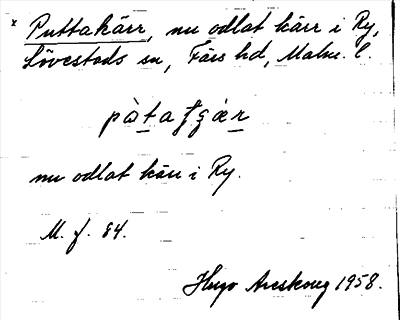 x Puttakärr, nu odlat kärr i Ry,
Lövestads sn, Färs hd, Malm. l.
nu odlat kärr i Ry.
M. f. 84.
Hugo Areskoug 1958.